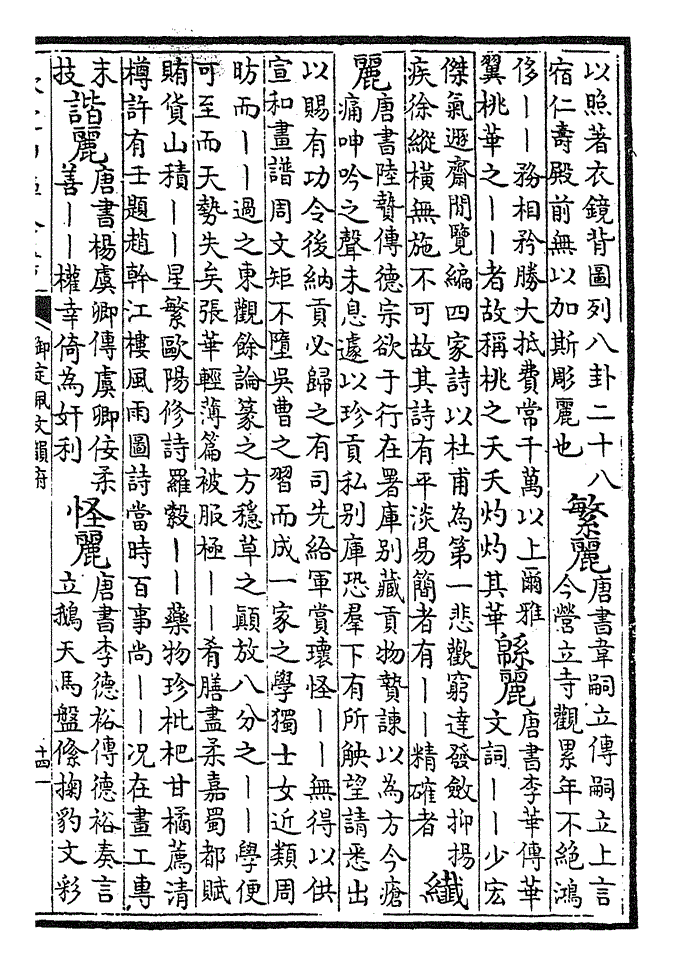 以照著衣鏡背圖列八卦二十八
宿仁壽殿前無以加斯彫麗也
繁麗
唐書韋嗣立傳嗣立上言
今營立寺觀累年不絕鴻
侈丨丨務相矜勝大抵費常千萬以上爾雅
翼桃華之丨丨者故稱桃之夭夭灼灼其華
緜麗
唐書李華傳華
文詞丨丨少宏
傑氣遯齋閒覽編四家詩以杜甫為第一悲歡窮達發斂抑揚
疾徐縱橫無施不可故其詩有平淡易簡者有丨丨精確者
纖
麗
唐書陸贄傳德宗欲于行在署庫别藏貢物贄諫以為方今瘡
痛呻吟之聲未息遽以珍貢私别庫恐羣下有所觖望請悉出
以賜有功令後納貢必歸之有司先給軍賞瓌怪丨丨無得以供
宣和畫譜周文矩不墮吳曹之習而成一家之學獨士女近類周
昉而丨丨過之東觀餘論篆之方穩草之顛放八分之丨丨學便
可至而天勢失矣張華輕薄篇被服極丨丨肴膳盡柔嘉蜀都賦
賄貨山積丨丨星繁歐陽修詩羅縠丨丨藥物珍枇杷甘橘薦清
樽許有壬題趙幹江樓風雨圖詩當時百事尚丨丨况在畫工專
末
技
諧麗
唐書楊虞卿傳虞卿佞柔
善丨丨權幸倚為奸利
怪麗
唐書李德裕傳德裕奏言
立鵝天馬盤絛掬豹文彩
御定佩文韻府
十四